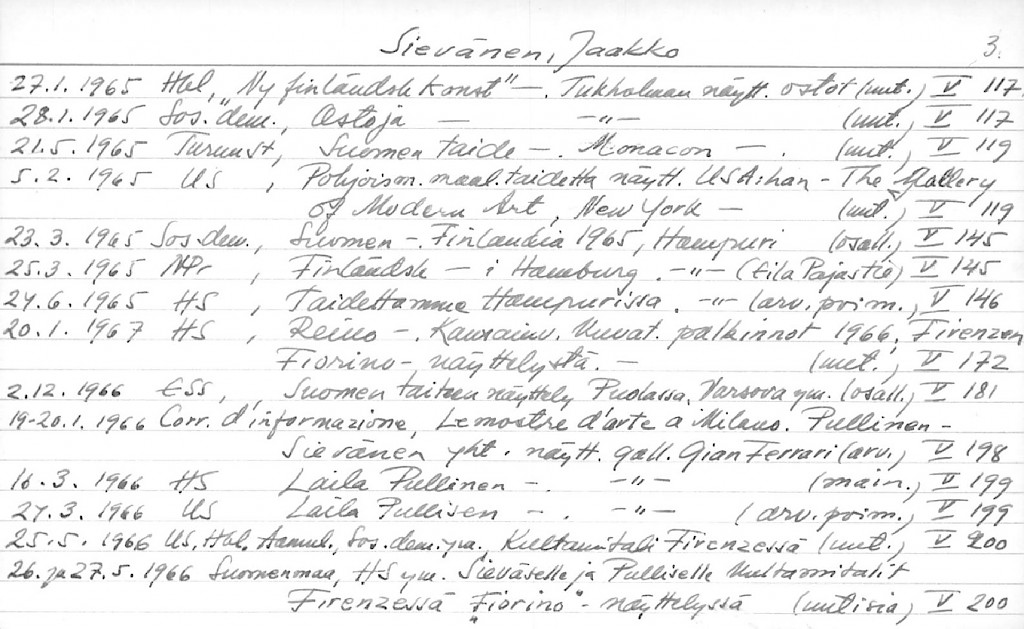 Sievänen, Jaakko 3.
27.1.1965 Hbl, "Ny finländsk konst" -. Tukholman näytt. ostot (uut.) V 117
28.1.1965 Sos.dem., Ostoja - -"- (uut.) V 117
21.5.1965 Turunst, Suomen taide -. Monacon -. (uut.) V 119
5.2.1965 US, Pohjoism. maal.taidetta näytt. USA:han - The Gallery
of Modern Art, New York - (uut.) V 119
23.3.1965 Sos.dem., Suomen -. Finlandia 1965, Hampuri (osall.) V 145
25.3.1965 NPr, Finländsk - i Hamburg. -"- (Eila Pajastie) V 145
24.6.1965 HS, Taidettamme Hampurissa. -"- (arv. poim.) V 146
20.1.1967 HS, Reino -. Kansainv. kuvat. palkinnot 1966, Firenzen
Fiorino-näyttelystä. - (uut.) V 172
2.12.1966 ESS, Suomen taiteen näyttely Puolassa, Varsova ym. (osall.) V 181
19-20.1.1966 Corr. d'informazione, Le mostre d'arte a Milano. Pullinen -
Sievänen yht. näytt. gall. Gian Ferrari (arv.) V 198
16.3.1966 HS Laila Pullinen -. -"- (main.) V 199
27.3.1966 US Laila Pullisen -. -"- (arv. poim.) V 199
25.5.1966 US, Hbl, Aamul., Sos.dem. ym., Kultamitali Firenzessä (uut.) V 200
26. ja 27.5.1966 Suomenmaa, HS ym. Sieväselle ja Pulliselle kultamitalit
Firenzessä "Fiorino"-näyttelyssä (uutisia) V 200